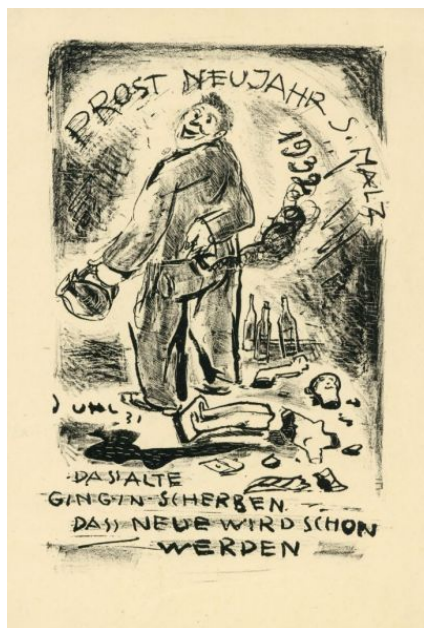 PROST NEUJAHR S. MALZ
1932
J UHL 31
DAS ALTE
GING IN SCHERBEN
DASS NEUE WIRD SCHON
WERDEN